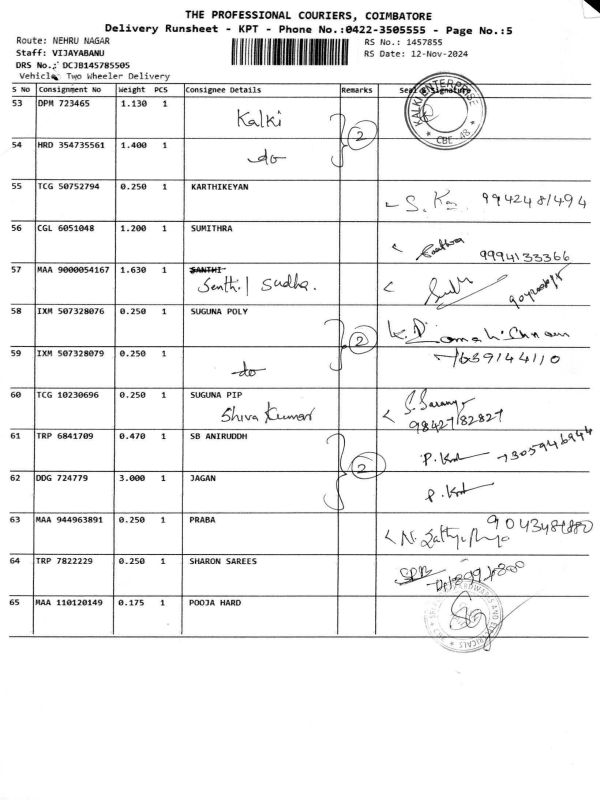 THE PROFESSIONAL COURIERS, COIMBATORE
Delivery Runsheet - KPT - Phone No.:0422-3505555 - Page No.:5
Route: NEHRU NAGAR RS No.: 1457855
Staff: VIJAYABANU RS Date: 12-Nov-2024
DRS No.: DCJB145785505
Vehicle Two Wheeler Delivery
S No Consignment No Weight PCS Consignee Details Remarks Seal & Signature
53 DPM 723465 1.130 1 Kalki 2 KALKI ENTERPRISE * CBE-48 *
54 HRD 354735561 1.400 1 do
55 TCG 50752794 0.250 1 KARTHIKEYAN
56 CGL 6051048 1.200 1 SUMITHRA 9994133366
57 MAA 9000054167 1.630 1 SANTHI
Senthil Sudha.
58 IXM 507328076 0.250 1 SUGUNA POLY 2
59 IXM 507328079 0.250 1 do 7639144110
60 TCG 10230696 0.250 1 SUGUNA PIP
Shiva Kumar 9842782827
61 TRP 6841709 0.470 1 SB ANIRUDDH 2
62 DDG 724779 3.000 1 JAGAN
63 MAA 944963891 0.250 1 PRABA
64 TRP 7822229 0.250 1 SHARON SAREES
65 MAA 110120149 0.175 1 POOJA HARD